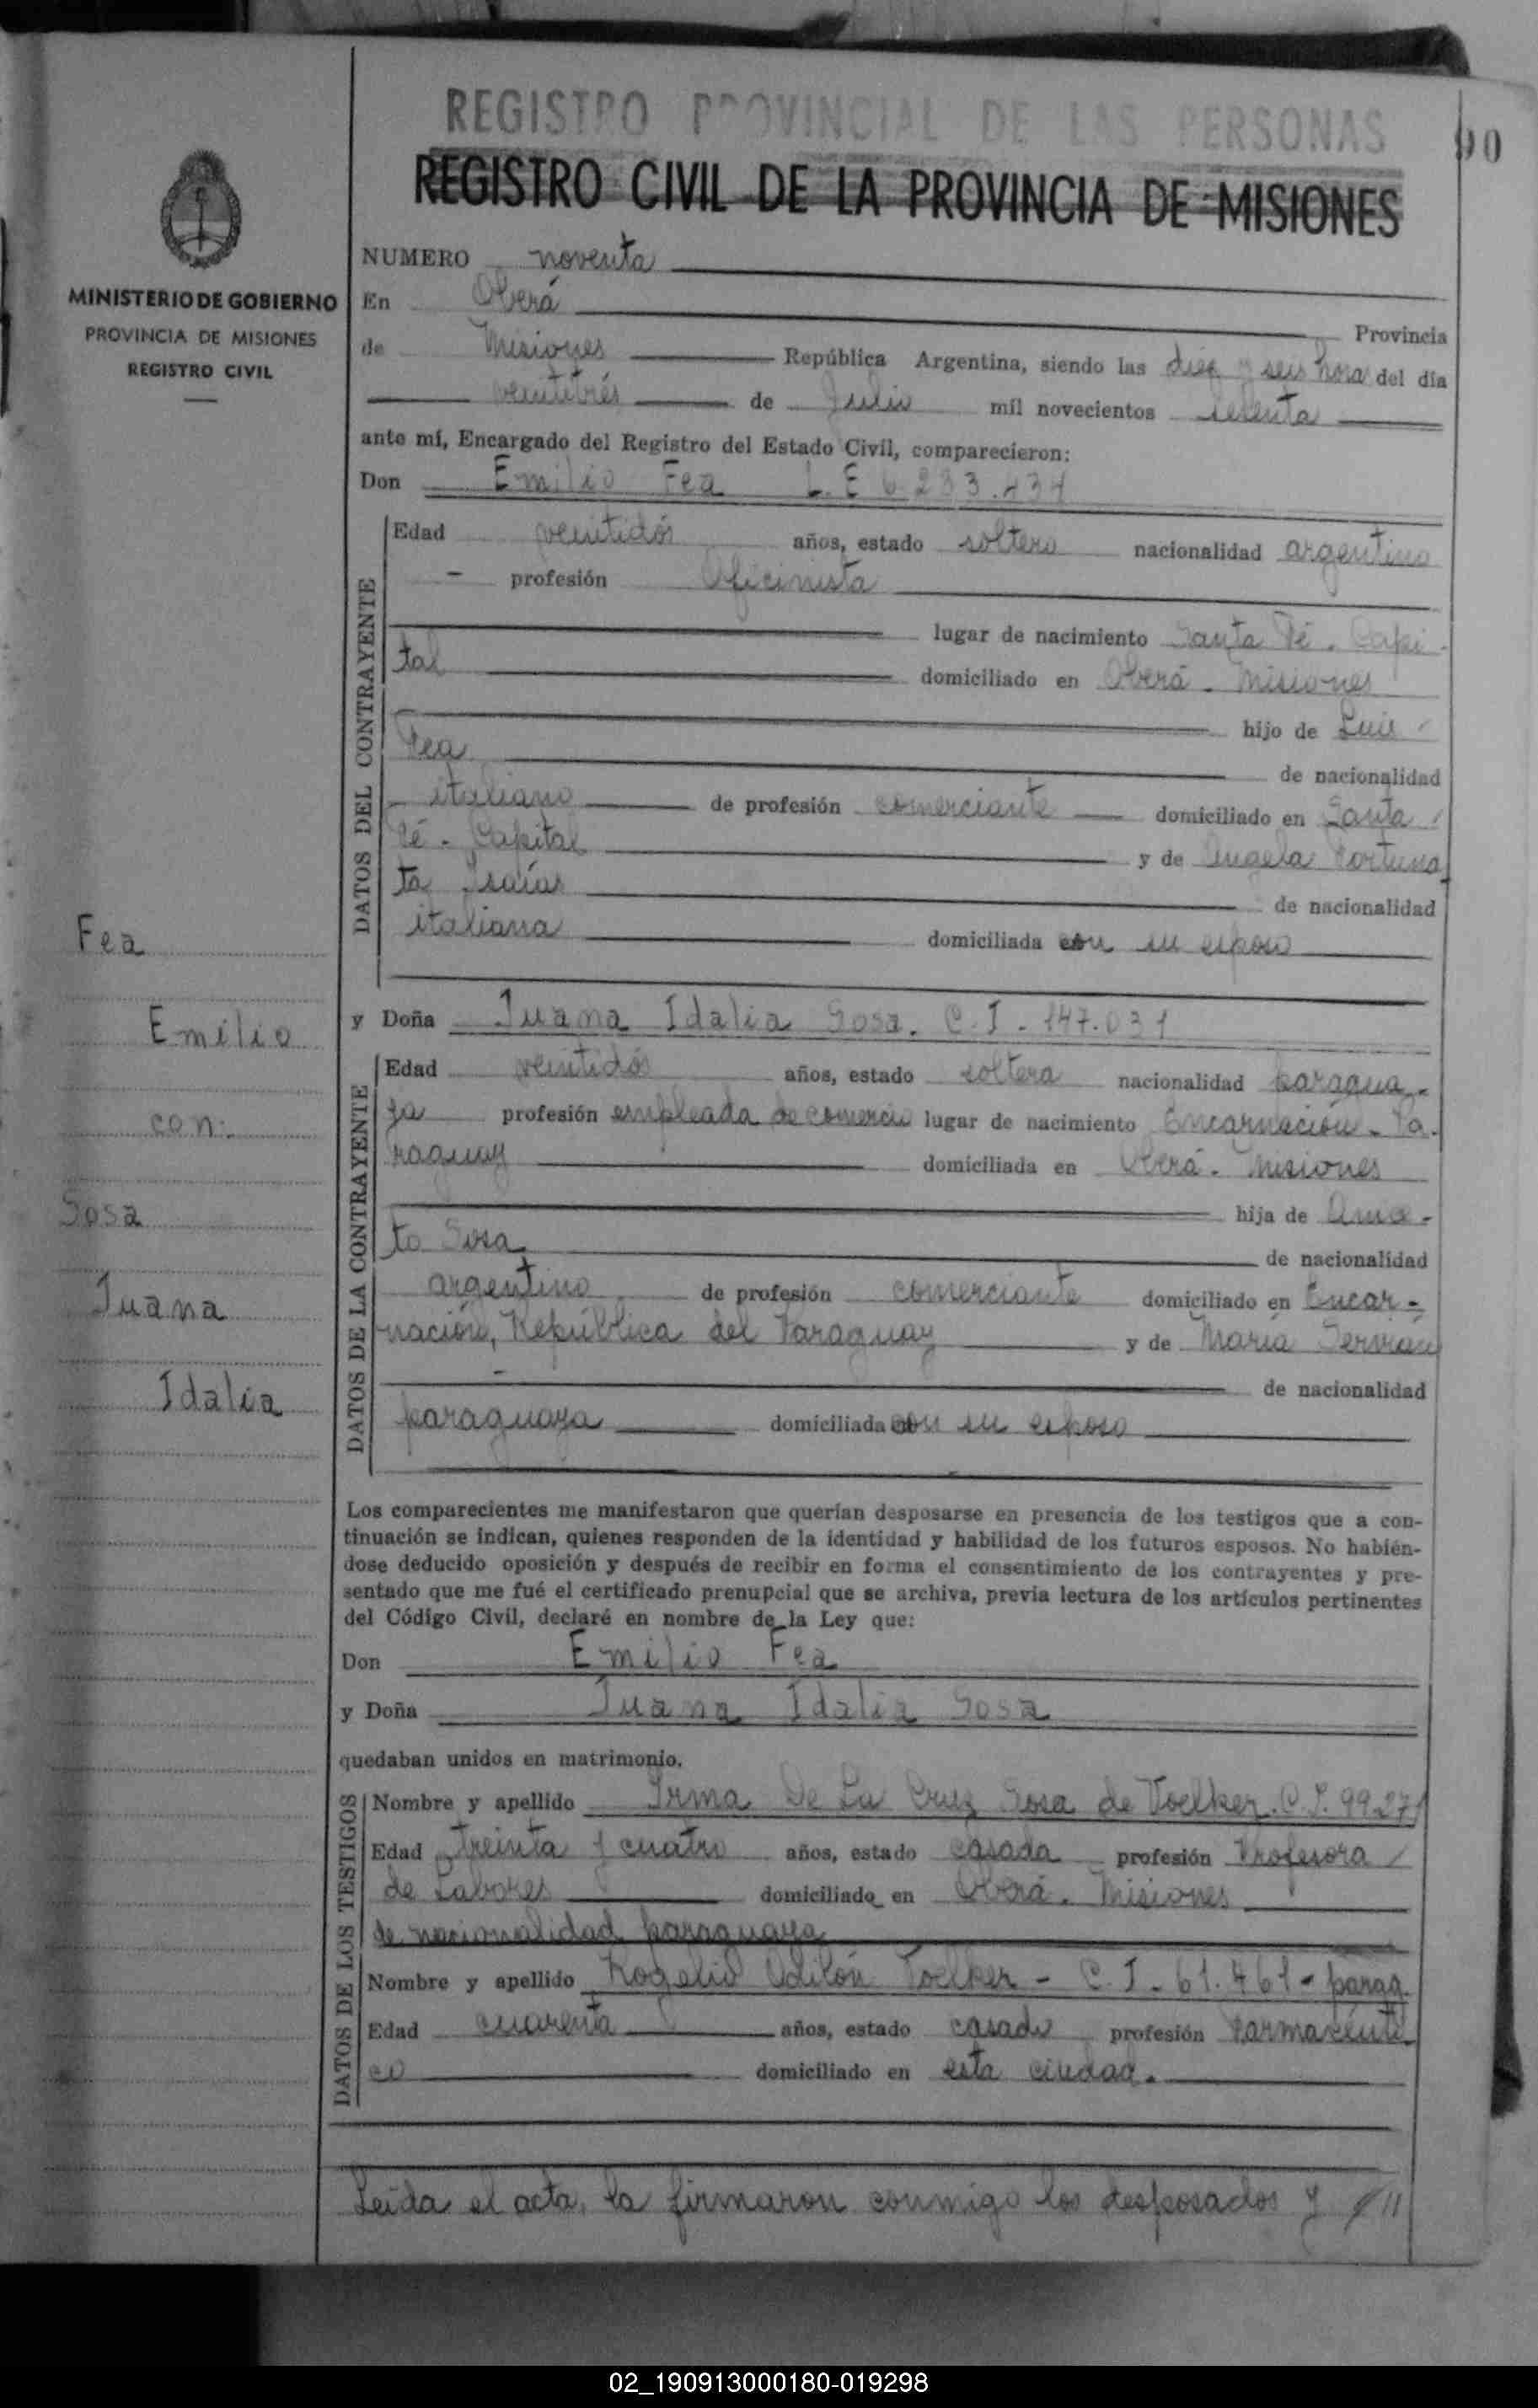 REGISTRO PROVINCIAL DE LAS PERSONAS
90
REGISTRO CIVIL DE LA PROVINCIA DE MISIONES
MINISTERIO DE GOBIERNO
PROVINCIA DE MISIONES
REGISTRO CIVIL
NUMERO noventa
En Oberá Provincia
de Misiones República Argentina, siendo las diez y seis hora del día
veintitrés de Julio mil novecientos setenta
ante mí, Encargado del Registro del Estado Civil, comparecieron:
Don Emilio Fea L.E 6.283.434
DATOS DEL CONTRAYENTE
Edad veintidós años, estado soltero nacionalidad argentino
- profesión Oficinista
lugar de nacimiento Santa Fé. Capi-
tal domiciliado en Oberá. Misiones
hijo de Luis
Fea de nacionalidad
italiano de profesión comerciante domiciliado en Santa
Fé - Capital y de Angela Fortuna
ta Isaías de nacionalidad
italiana domiciliada con su esposo
Fea
Emilio
con
Sosa
Juana
Idalia
y Doña Juana Idalia Sosa. C.I. 147.031
DATOS DE LA CONTRAYENTE
Edad veintidós años, estado soltera nacionalidad paragua-
ya profesión empleada de comercio lugar de nacimiento Encarnación. Pa-
raguay domiciliada en Oberá. Misiones
hija de
to Sosa de nacionalidad
argentino de profesión comerciante domiciliado en Encar-
nación, República del Paraguay y de María Servián
de nacionalidad
paraguaya domiciliada con su esposo
Los comparecientes me manifestaron que querían desposarse en presencia de los testigos que a con-
tinuación se indican, quienes responden de la identidad y habilidad de los futuros esposos. No habién-
dose deducido oposición y después de recibir en forma el consentimiento de los contrayentes y pre-
sentado que me fué el certificado prenupcial que se archiva, previa lectura de los artículos pertinentes
del Código Civil, declaré en nombre de la Ley que:
Don Emilio Fea
y Doña Juana Idalia Sosa
quedaban unidos en matrimonio.
DATOS DE LOS TESTIGOS
Nombre y apellido Irma De La Cruz Sosa de Voelker. C.I. 99.271
Edad treinta y cuatro años, estado casada profesión Profesora
de Labores domiciliado en Oberá. Misiones
de nacionalidad paraguaya
Nombre y apellido Rogelio Odilón Voelker - C.I. 61.461 - parag.
Edad cuarenta años, estado casado profesión Farmacéuti
co domiciliado en esta ciudad.
Leída el acta, la firmaron conmigo los desposados y
02_190913000180-019298